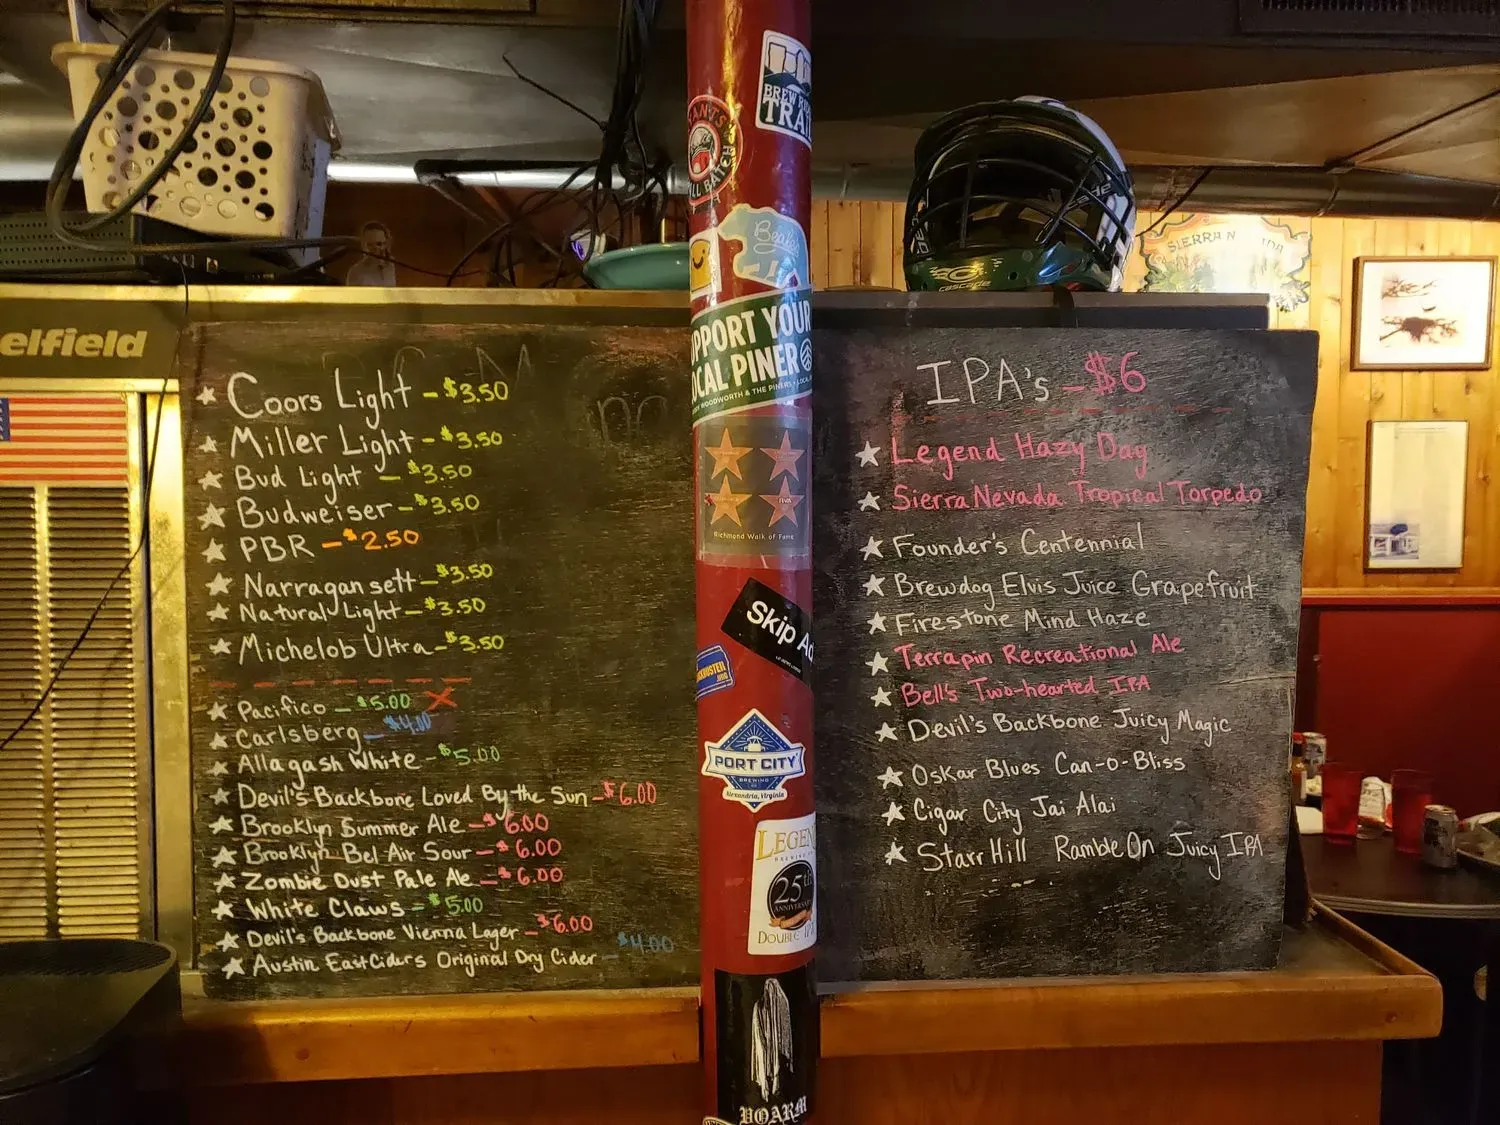 elfield
★ Coors Light - $3.50
★ Miller Light - $3.50
★ Bud Light - $3.50
★ Budweiser - $3.50
★ PBR - $2.50
★ Narragansett - $3.50
★ Natural Light - $3.50
★ Michelob Ultra - $3.50
★ Pacifico - $5.00 X
★ Carlsberg - $4.00
★ Allagash White - $5.00
★ Devil's Backbone Loved By the Sun - $6.00
★ Brooklyn Summer Ale - $6.00
★ Brooklyn Bel Air Sour - $6.00
★ Zombie Dust Pale Ale - $6.00
★ White Claws - $5.00
★ Devil's Backbone Vienna Lager - $6.00
★ Austin EastCiders Original Dry Cider $4.00
BREW
TRAIL
ANTS
LL BATCH
Beale
PPORT YOUR
OCAL PINER
WOODWORTH & THE PINERS
Richmond Walk of Fame
Skip Ad
PORT CITY
BREWING
Alexandria, Virginia
LEGEN
25th
ANNIVERSARY
DOUBLE IPA
VOARM
cascade
SIERRA N DA
IPA's - $6
★ Legend Hazy Day
★ Sierra Nevada Tropical Torpedo
★ Founder's Centennial
★ Brewdog Elvis Juice Grapefruit
★ Firestone Mind Haze
★ Terrapin Recreational Ale
★ Bell's Two-hearted IPA
★ Devil's Backbone Juicy Magic
★ Oskar Blues Can-o-Bliss
★ Cigar City Jai Alai
★ Starr Hill Ramble On Juicy IPA